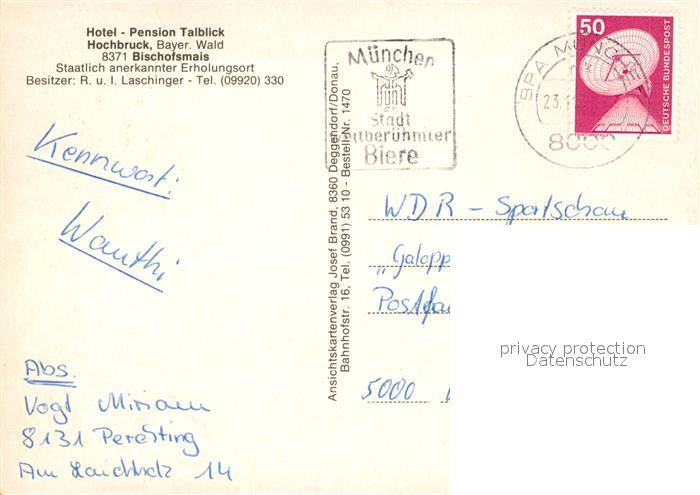 Hotel - Pension Talblick
Hochbruck, Bayer. Wald
8371 Bischofsmais
Staatlich anerkannter Erholungsort
Besitzer: R. u. I. Laschinger - Tel. (09920) 330
München
Stadt
weltberühmter
Biere
50
DEUTSCHE BUNDESPOST
BPA MÜNCHE
23.
8000
Kennwort:
Wanthi
Ansichtskartenverlag Josef Brand, 8360 Deggendorf/Donau,
Bahnhofstr. 16, Tel. (0991) 53 10 - Bestell-Nr. 1470
WDR - Sportschau
„Galopp
Postfa
5000
privacy protection
Datenschutz
Abs.
Vogt Miriam
8131 Perchting
Am 14